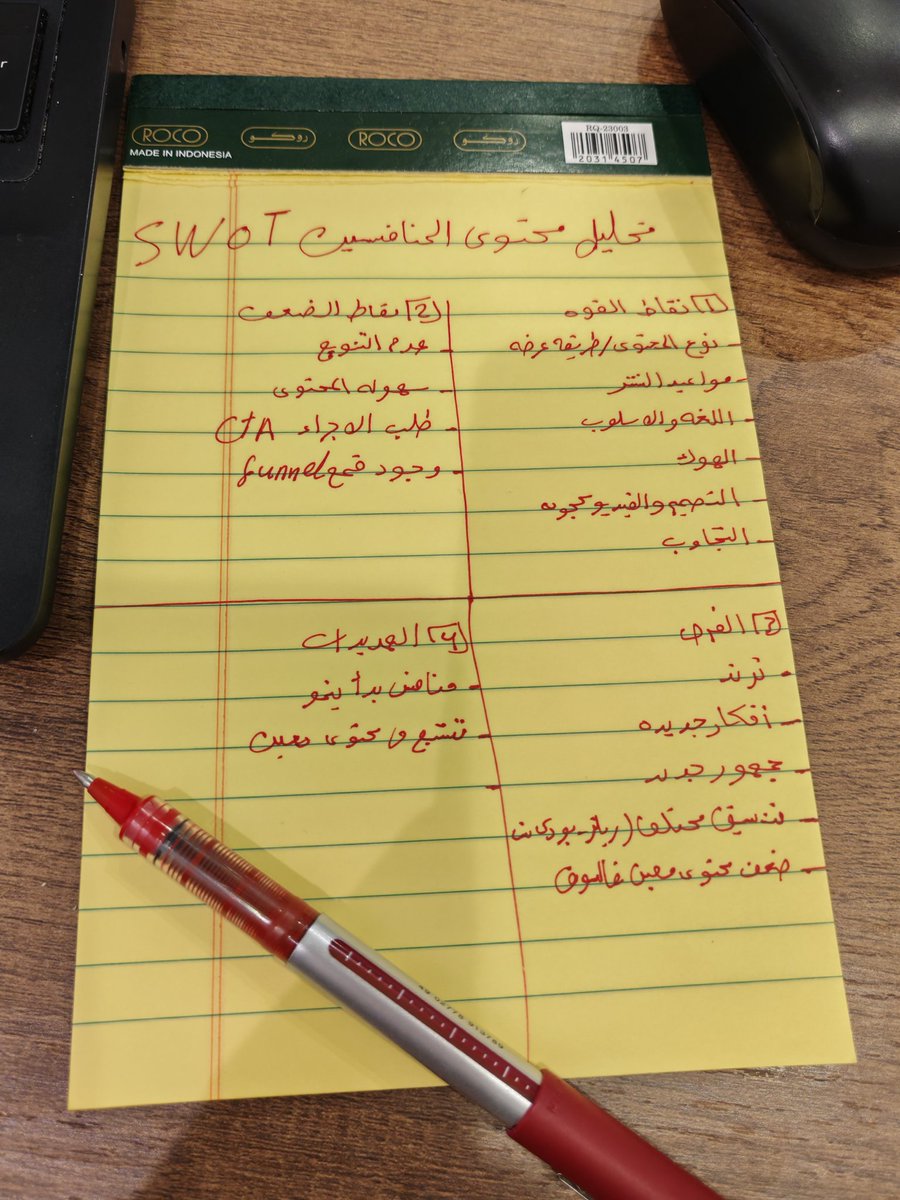 r
ROCO روكو ROCO روكو
MADE IN INDONESIA
RQ-23003
2031 4507
تحليل محتوى المنافسين SWOT
1 نقاط القوه
- نوع المحتوى/طريقه عرضه
- مواعيد النشر
- اللغه والاسلوب
- الهوك
- التصميم والفيديو كجوده
- التجاوب
2 نقاط الضعف
- عدم التنويع
- سهوله المحتوى
- طلب الاجراء CTA
- وجود قمع funnel
3 الفرص
- ترند
- أفكار جديده
- جمهور جديد
- تنسيق مختلف (ريلز-بودكاست
- ضعف محتوى معين فالسوق
4 التهديدات
- منافس بدأ ينمو
- تشبع من محتوى معين
-